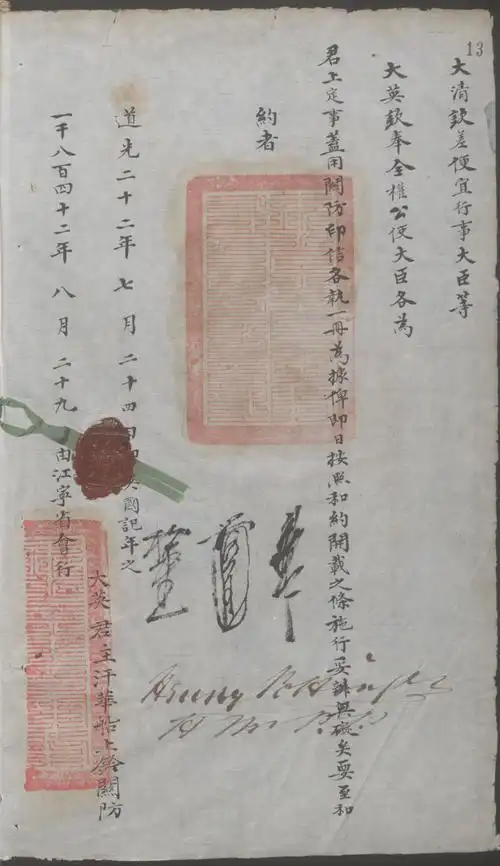 13
大清欽差便宜行事大臣等
大英欽奉全權公使大臣各為
君上定事蓋用關防印信各執一冊為據俾即日按照和約開載之條施行妥辦無礙矣要至和
約者
道光二十二年七月二十四日即英國記年之
一千八百四十二年八月二十九由江寧省會行
大英君主汗華船上鈐關防
Henry Pottinger